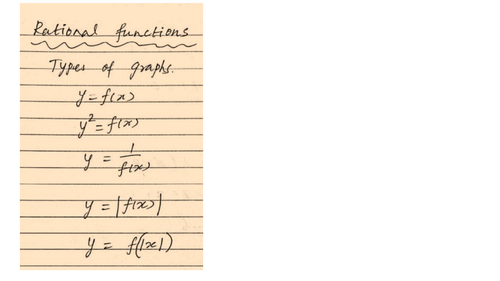 Rational functions
Types of graphs.
y = f(x)
y² = f(x)
y = 1/f(x)
y = |f(x)|
y = f(|x|)